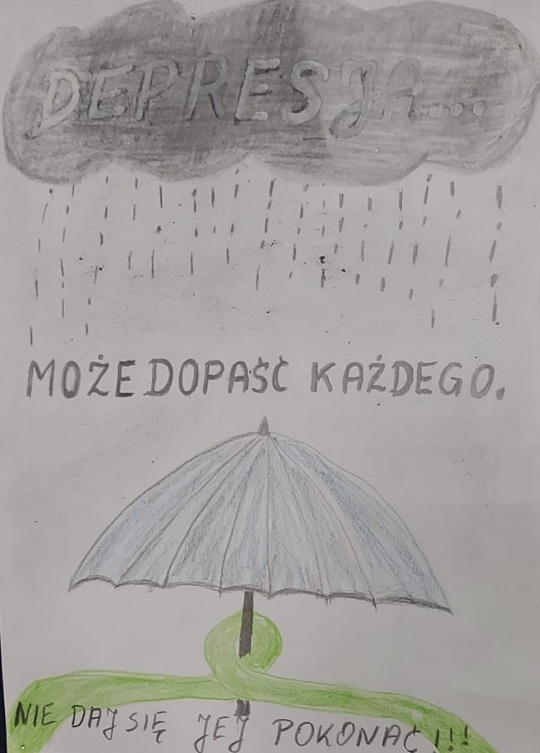 DEPRESJA....
MOŻE DOPAŚĆ KAŻDEGO.
NIE DAJ SIĘ JEJ POKONAĆ!!!